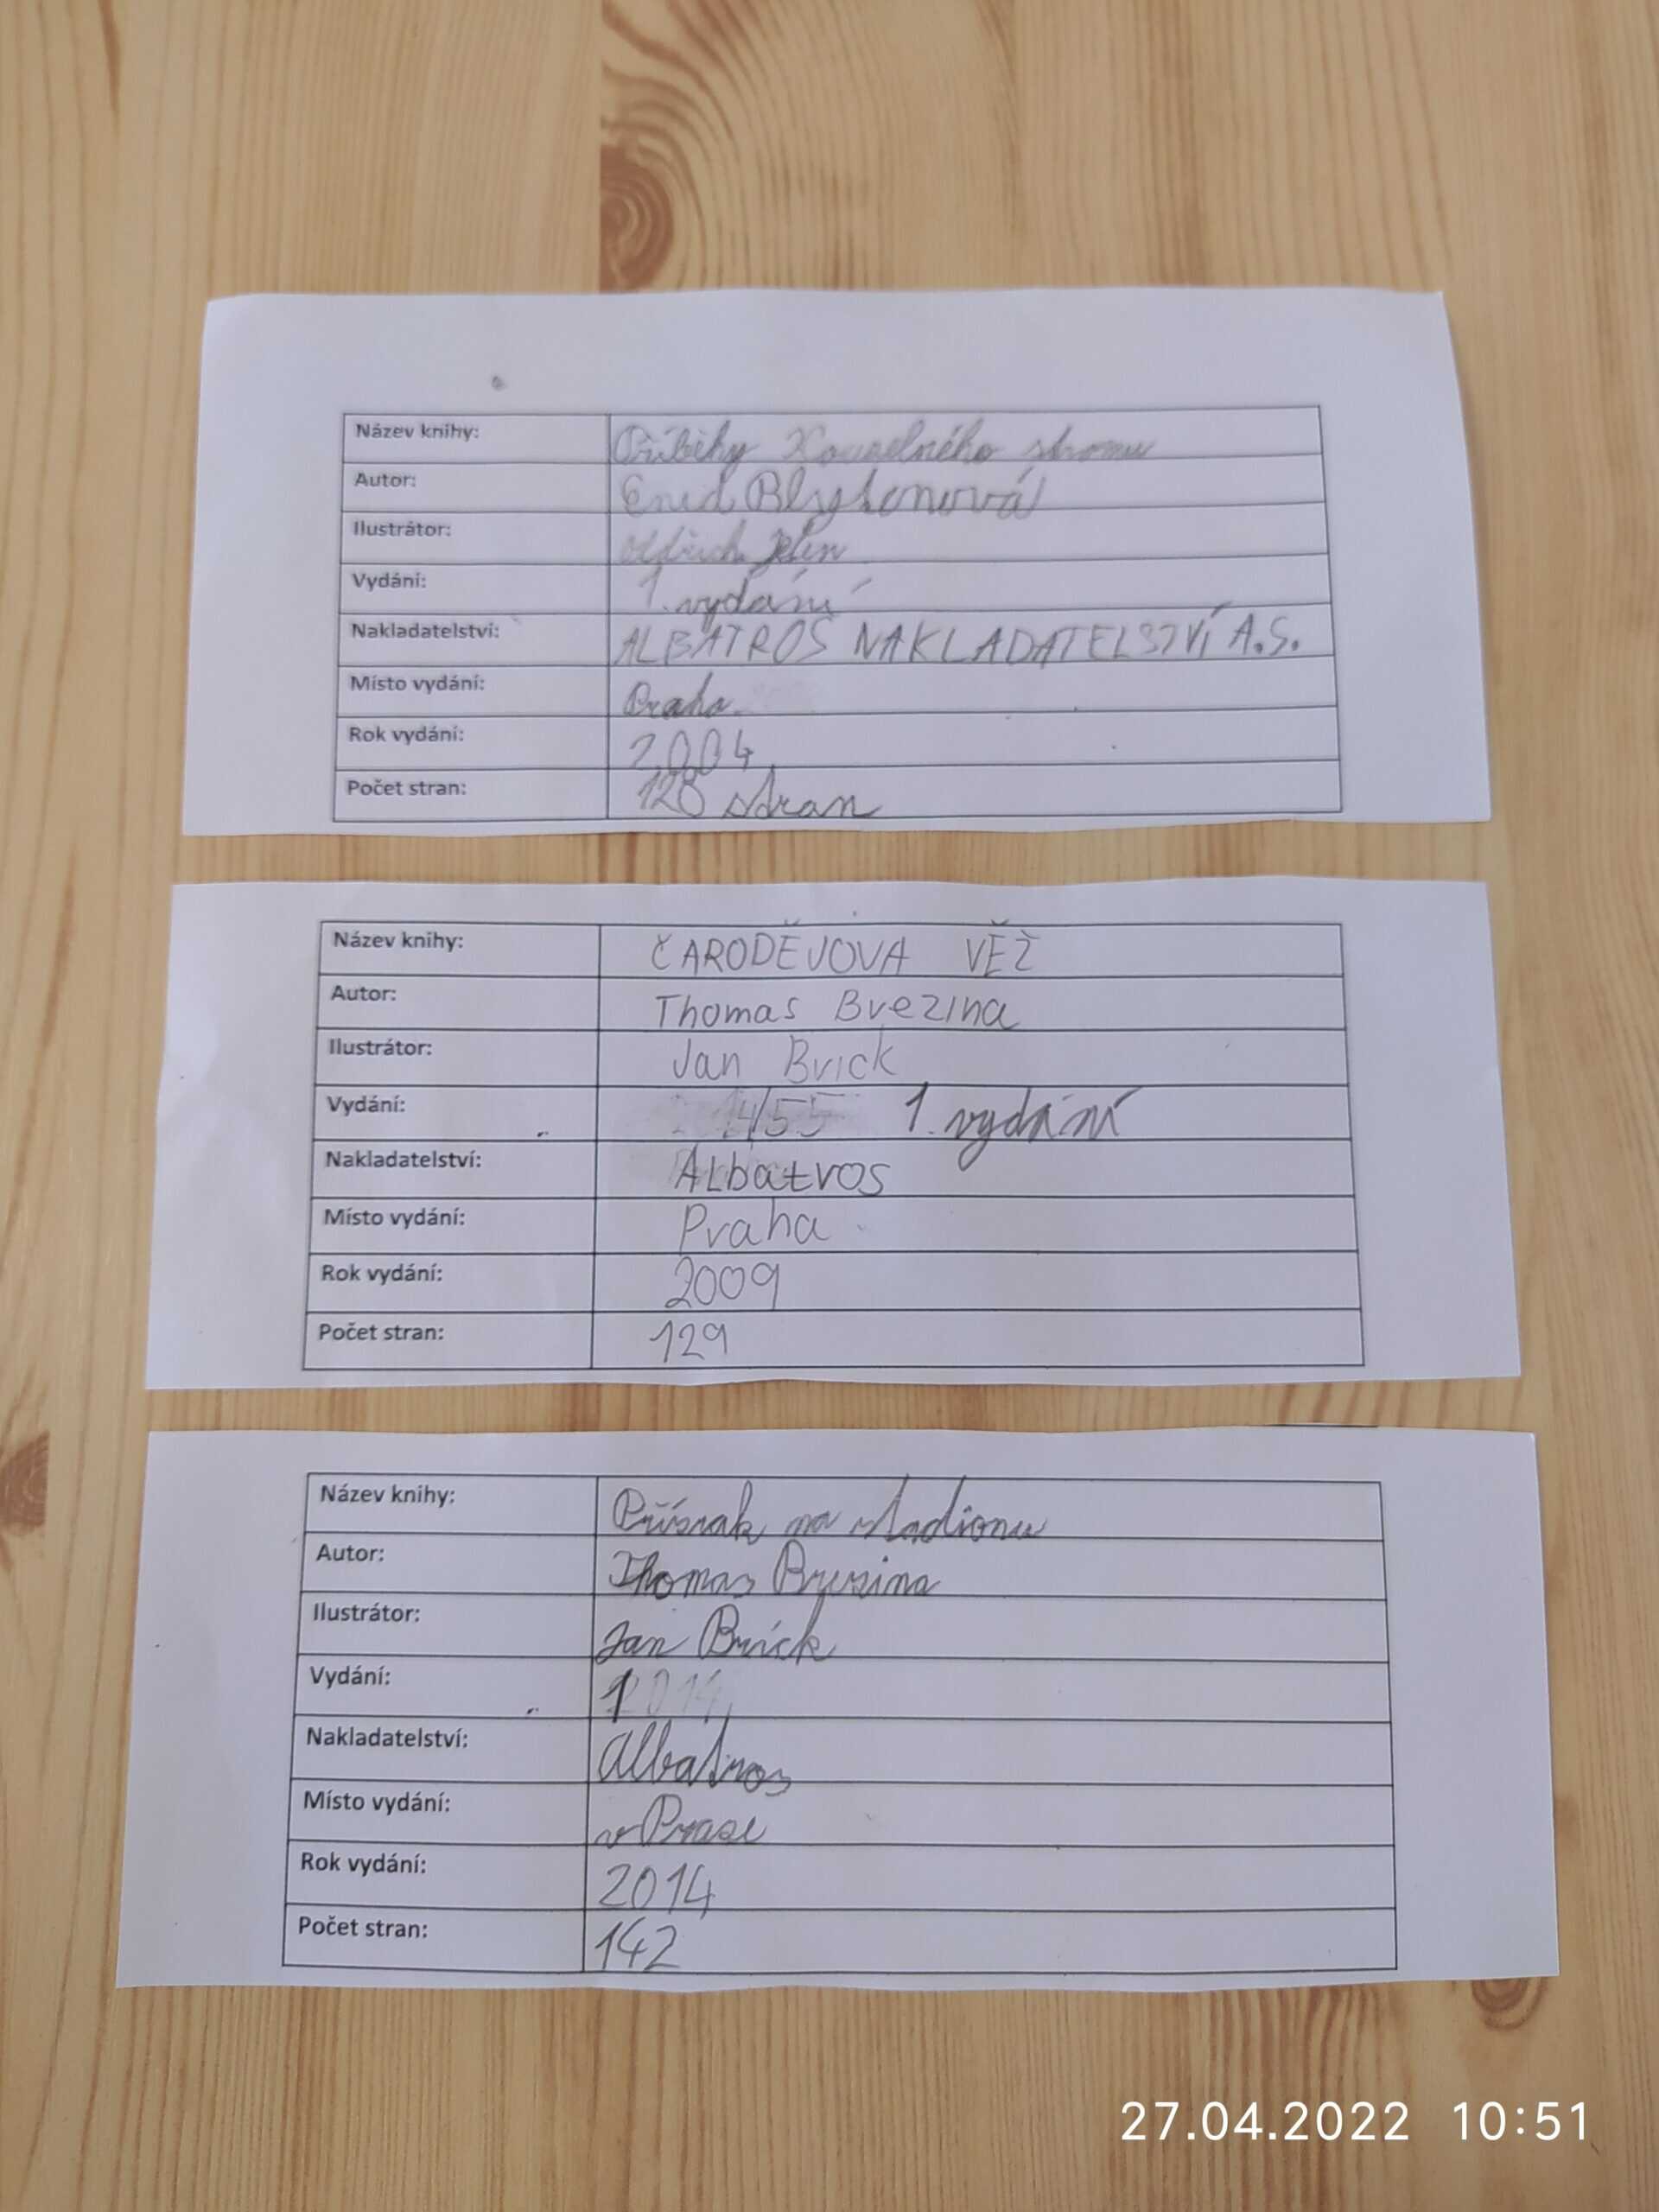 Název knihy: Příběhy Kouzelného stromu
Autor: Enid Blytonová
Ilustrátor: Oldřich Jelen
Vydání: 1. vydání
Nakladatelství: ALBATROS NAKLADATELSTVÍ A.S.
Místo vydání: Praha
Rok vydání: 2004
Počet stran: 128 stran
Název knihy: ČARODĚJOVA VĚŽ
Autor: Thomas Brezina
Ilustrátor: Jan Brick
Vydání: 14/55 1. vydání
Nakladatelství: Albatros
Místo vydání: Praha
Rok vydání: 2009
Počet stran: 129
Název knihy: Přízrak na stadionu
Autor: Thomas Brezina
Ilustrátor: Jan Brick
Vydání: 1
Nakladatelství: Albatros
Místo vydání: v Praze
Rok vydání: 2014
Počet stran: 142
27.04.2022 10:51